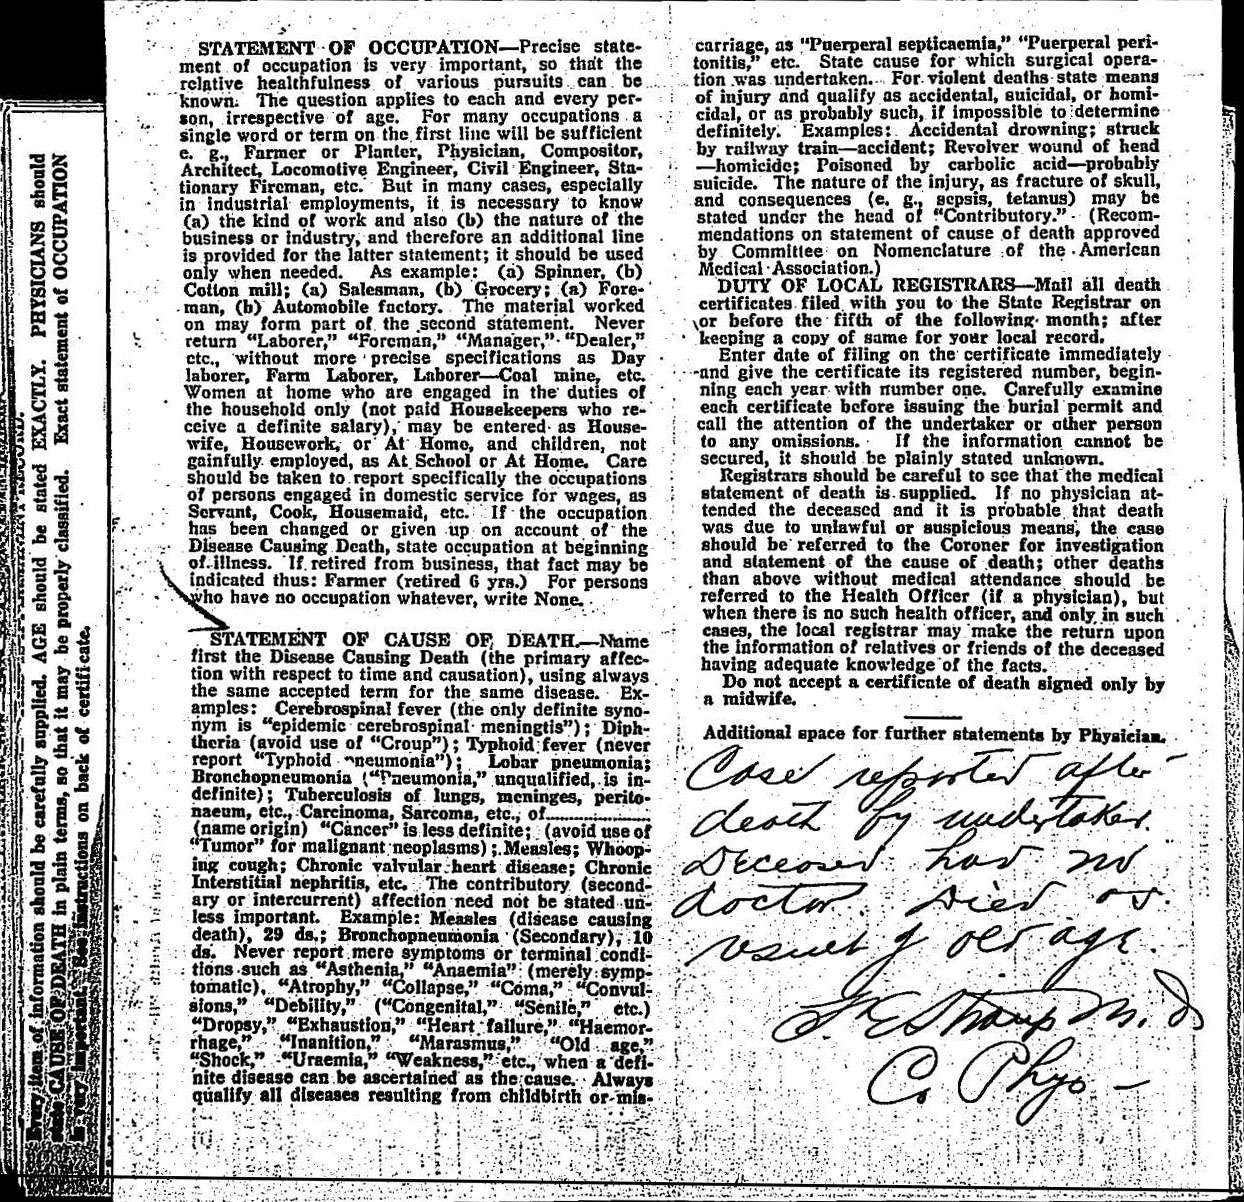 Every item of information should be carefully supplied. AGE should be stated EXACTLY. PHYSICIANS should
state CAUSE OF DEATH in plain terms, so that it may be properly classified. Exact statement of OCCUPATION
is very important. See instructions on back of certificate.
STATEMENT OF OCCUPATION—Precise state-
ment of occupation is very important, so that the
relative healthfulness of various pursuits can be
known. The question applies to each and every per-
son, irrespective of age. For many occupations a
single word or term on the first line will be sufficient
e. g., Farmer or Planter, Physician, Compositor,
Architect, Locomotive Engineer, Civil Engineer, Sta-
tionary Fireman, etc. But in many cases, especially
in industrial employments, it is necessary to know
(a) the kind of work and also (b) the nature of the
business or industry, and therefore an additional line
is provided for the latter statement; it should be used
only when needed. As example: (a) Spinner, (b)
Cotton mill; (a) Salesman, (b) Grocery; (a) Fore-
man, (b) Automobile factory. The material worked
on may form part of the second statement. Never
return "Laborer," "Foreman," "Manager," "Dealer,"
etc., without more precise specifications as Day
laborer, Farm Laborer, Laborer—Coal mine, etc.
Women at home who are engaged in the duties of
the household only (not paid Housekeepers who re-
ceive a definite salary), may be entered as House-
wife, Housework, or At Home, and children, not
gainfully employed, as At School or At Home. Care
should be taken to report specifically the occupations
of persons engaged in domestic service for wages, as
Servant, Cook, Housemaid, etc. If the occupation
has been changed or given up on account of the
Disease Causing Death, state occupation at beginning
of illness. If retired from business, that fact may be
indicated thus: Farmer (retired 6 yrs.) For persons
who have no occupation whatever, write None.
STATEMENT OF CAUSE OF DEATH.—Name
first the Disease Causing Death (the primary affec-
tion with respect to time and causation), using always
the same accepted term for the same disease. Ex-
amples: Cerebrospinal fever (the only definite syno-
nym is "epidemic cerebrospinal meningtis"); Diph-
theria (avoid use of "Croup"); Typhoid fever (never
report "Typhoid pneumonia"); Lobar pneumonia;
Bronchopneumonia ("Pneumonia," unqualified, is in-
definite); Tuberculosis of lungs, meninges, perito-
naeum, etc., Carcinoma, Sarcoma, etc., of................
(name origin) "Cancer" is less definite; (avoid use of
"Tumor" for malignant neoplasms); Measles; Whoop-
ing cough; Chronic valvular heart disease; Chronic
Interstitial nephritis, etc. The contributory (second-
ary or intercurrent) affection need not be stated un-
less important. Example: Measles (disease causing
death), 29 ds.; Bronchopneumonia (Secondary), 10
ds. Never report mere symptoms or terminal condi-
tions such as "Asthenia," "Anaemia" (merely symp-
tomatic), "Atrophy," "Collapse," "Coma," "Convul-
sions," "Debility," ("Congenital," "Senile," etc.)
"Dropsy," "Exhaustion," "Heart failure," "Haemor-
rhage," "Inanition," "Marasmus," "Old age,"
"Shock," "Uraemia," "Weakness," etc., when a defi-
nite disease can be ascertained as the cause. Always
qualify all diseases resulting from childbirth or mis-
carriage, as "Puerperal septicaemia," "Puerperal peri-
tonitis," etc. State cause for which surgical opera-
tion was undertaken. For violent deaths state means
of injury and qualify as accidental, suicidal, or homi-
cidal, or as probably such, if impossible to determine
definitely. Examples: Accidental drowning; struck
by railway train—accident; Revolver wound of head
—homicide; Poisoned by carbolic acid—probably
suicide. The nature of the injury, as fracture of skull,
and consequences (e. g., sepsis, tetanus) may be
stated under the head of "Contributory." (Recom-
mendations on statement of cause of death approved
by Committee on Nomenclature of the American
Medical Association.)
DUTY OF LOCAL REGISTRARS—Mail all death
certificates filed with you to the State Registrar on
or before the fifth of the following month; after
keeping a copy of same for your local record.
Enter date of filing on the certificate immediately
and give the certificate its registered number, begin-
ning each year with number one. Carefully examine
each certificate before issuing the burial permit and
call the attention of the undertaker or other person
to any omissions. If the information cannot be
secured, it should be plainly stated unknown.
Registrars should be careful to see that the medical
statement of death is supplied. If no physician at-
tended the deceased and it is probable that death
was due to unlawful or suspicious means, the case
should be referred to the Coroner for investigation
and statement of the cause of death; other deaths
than above without medical attendance should be
referred to the Health Officer (if a physician), but
when there is no such health officer, and only in such
cases, the local registrar may make the return upon
the information of relatives or friends of the deceased
having adequate knowledge of the facts.
Do not accept a certificate of death signed only by
a midwife.
Additional space for further statements by Physician.
Case reported after
death by undertaker.
Deceased had no
doctor. Died as
result of old age.
M. D
Co Phys -